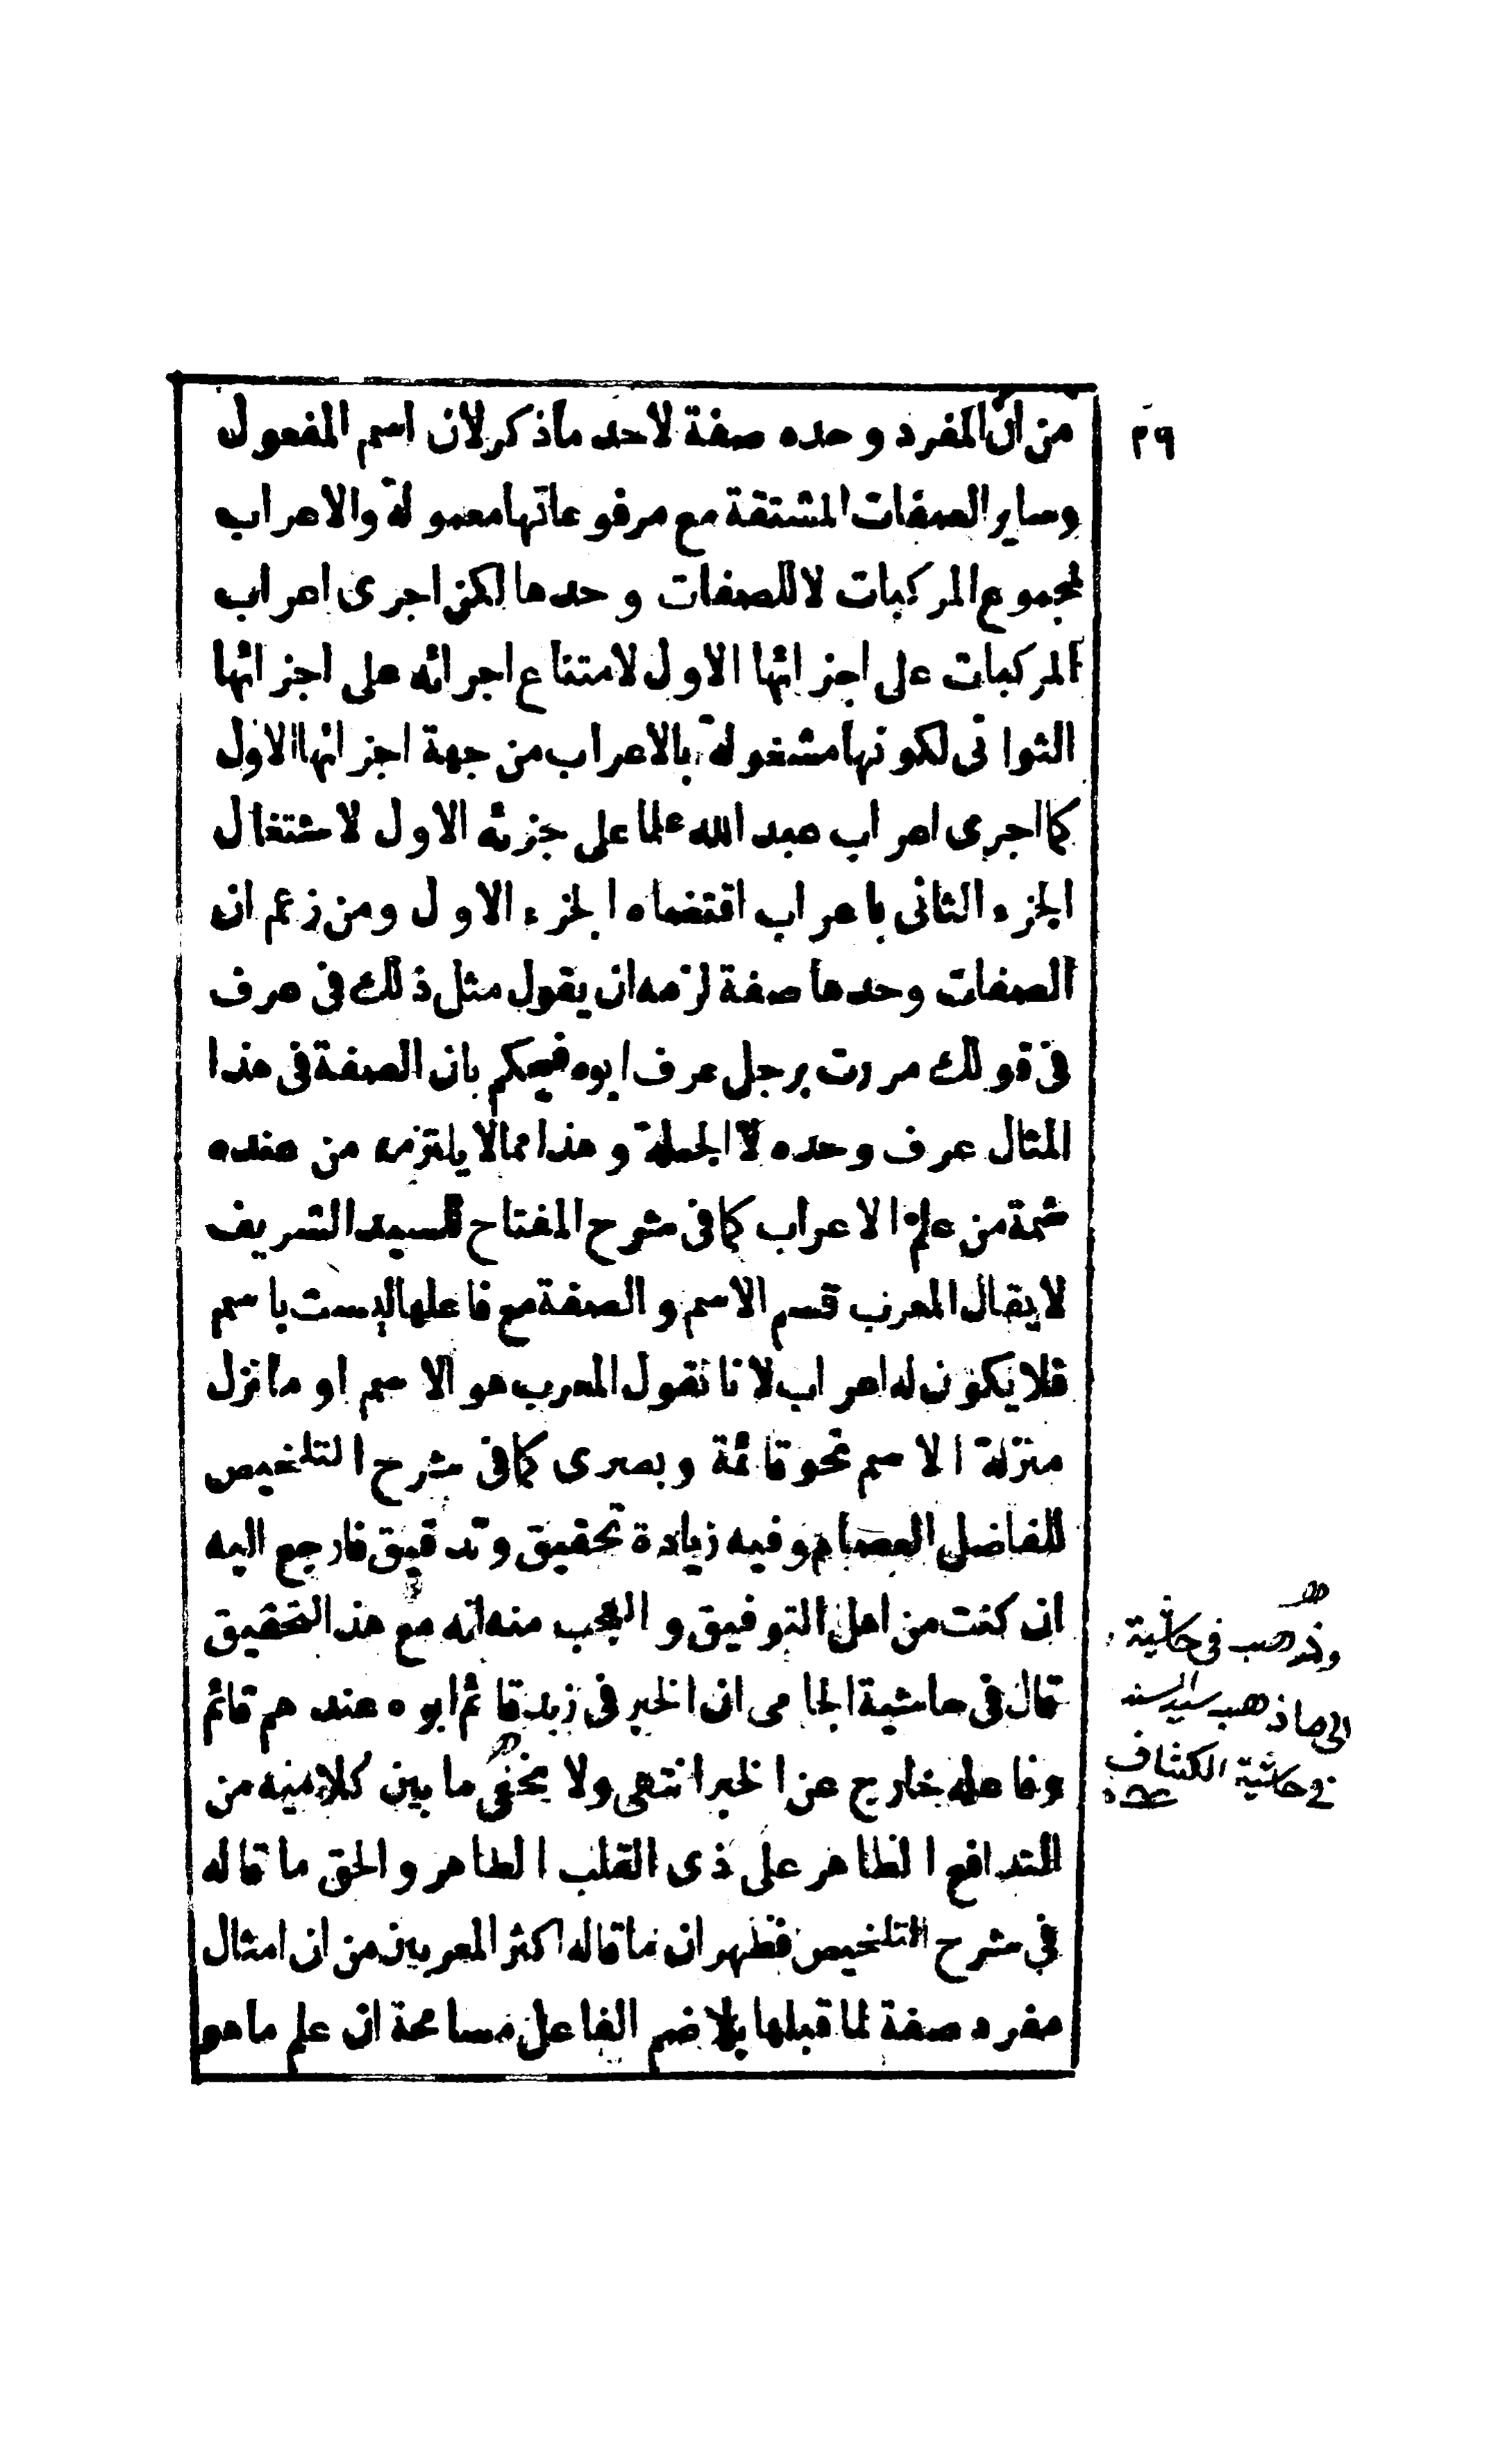 ٢٩
من ان المفرد وحده صفة لاحد ماذكر لان اسم المفعول
وساير الصفات المشتقة مع مرفوعاتها معمولة والاعراب
لمجموع المركبات لا للصفات وحدها لكن اجرى اعراب
المركبات على اجزائها الاول لامتناع اجرائه على اجزائها
الثوانى لكونها مشغولة بالاعراب من جهة اجزائها الاول
كما اجرى اعراب عبد الله علما على جزئه الاول لاشتغال
الجزء الثانى باعراب اقتضاه الجزء الاول ومن زعم ان
الصفات وحدها صفة لزمه ان يقول مثل ذلك فى عرف
فى قولك مررت برجل عرف ابوه فيحكم بان الصفة فى هذا
المثال عرف وحده لا الجملة وهذا مما لا يلتزمه من عنده
شمة من علم الاعراب كما فى شرح المفتاح للسيد الشريف
لا يقال المعرب قسم الاسم والصفة مع فاعلها ليست باسم
فلا يكون له اعراب لانا نقول المعرب هو الاسم او ما نزل
منزلة الاسم نحو قائمة وبصرى كما فى شرح التلخيص
للفاضل العصام وفيه زيادة تحقيق وتدقيق فارجع اليه
ان كنت من اهل التوفيق والعجب منه انه مع هذا التحقيق
قال فى حاشية الجامى ان الخبر فى زيد قائم ابوه عندهم قائم
وفاعله خارج عن الخبر انتهى ولا يخفى ما بين كلاميه من
التدافع الظاهر على ذى القلب الطاهر والحق ما قاله
فى شرح التلخيص فظهر ان ما قاله اكثر المعربين من ان امثال
مفرد صفة لما قبلها بلا ضم الفاعل مسامحة ان علم ما هو
وذهب فى حاشية
الى ما ذهب سيد السند
فى حاشية الكشاف